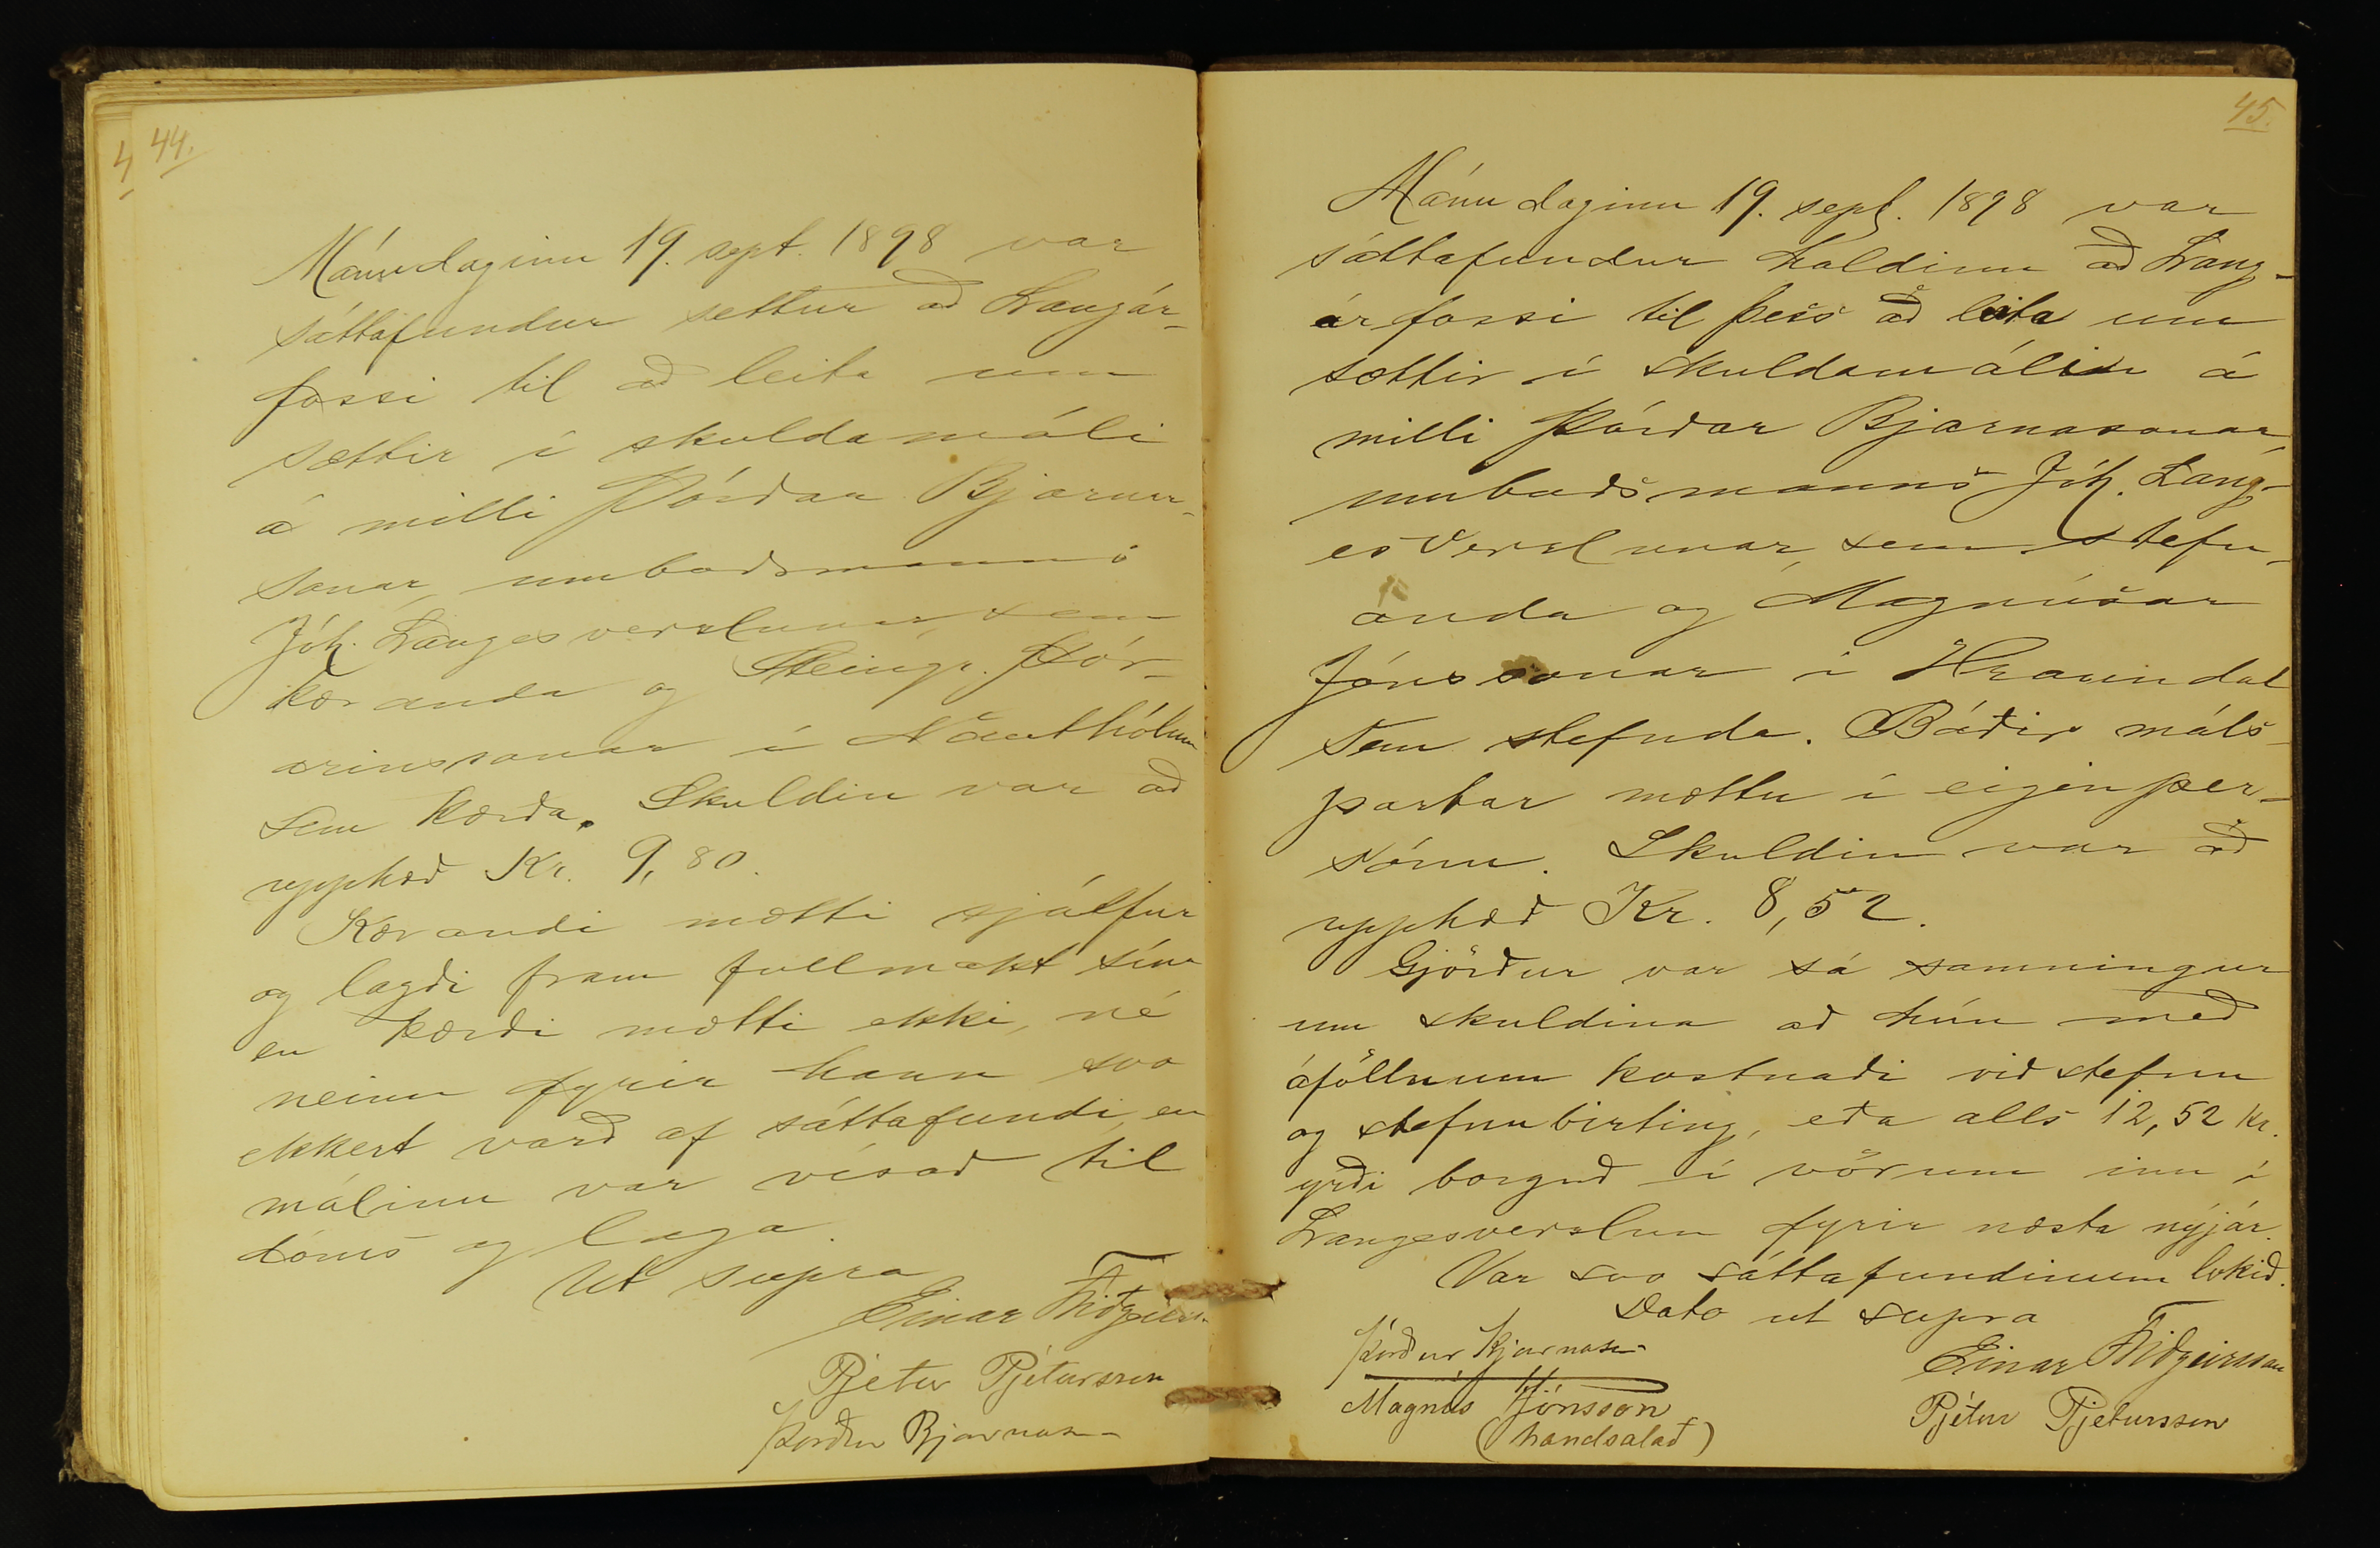 44.
Mánudaginn 19. sept. 1898 var
sáttafundur settur að Langár-
fossi til að leita um
sættir í skuldamáli
á milli Þórðar Bjarna-
sonar, umboðsmanns
Jóh. Langesverslunar, sem
kæranda og Steingr. Þór-
arinssonar í
sem kærða. Skuldin var að
upphæð Kr. 9,80.
Kærandi mætti sjálfur
og lagði fram fullmakt sína
en kærði mætti ekki, né
neinn fyrir hann svo
ekkert varð af sáttafundi, en
málinu var vísað til
dóms og laga.
Ut supra
Einar Friðgeirs.
Pjetur Pjetursson
Þorður Bjarnason
45.
Mánudaginn 19. sept. 1898 var
sáttafundur haldinn að Lang-
árfossi til þess að leita um
sættir í skuldamálinu á
milli Þórðar Bjarnasonar,
umboðsmanns Jóh. Lang-
es Verslunar, sem stefn-
anda og Magnúsar
Jónssonar í Hraundal
sem stefnda. Báðir máls-
partar mættu í eigin per-
sónu. Skuldin var að
upphæð Kr. 8,52.
Gjörður var sá samningur
um skuldina að hún með
áföllnum kostnaði við stefnu
og stefnubirting, eða alls 12,52 kr.
yrði borguð í vörum inn í
Langesverslun fyrir næsta nýjár.
Var svo sáttafundinum lokið.
Dato ut supra
Þórður Bjarnason
Einar Friðgeirsson
Magnús Jónsson
Pjétur Pjetursson
(handsalað)